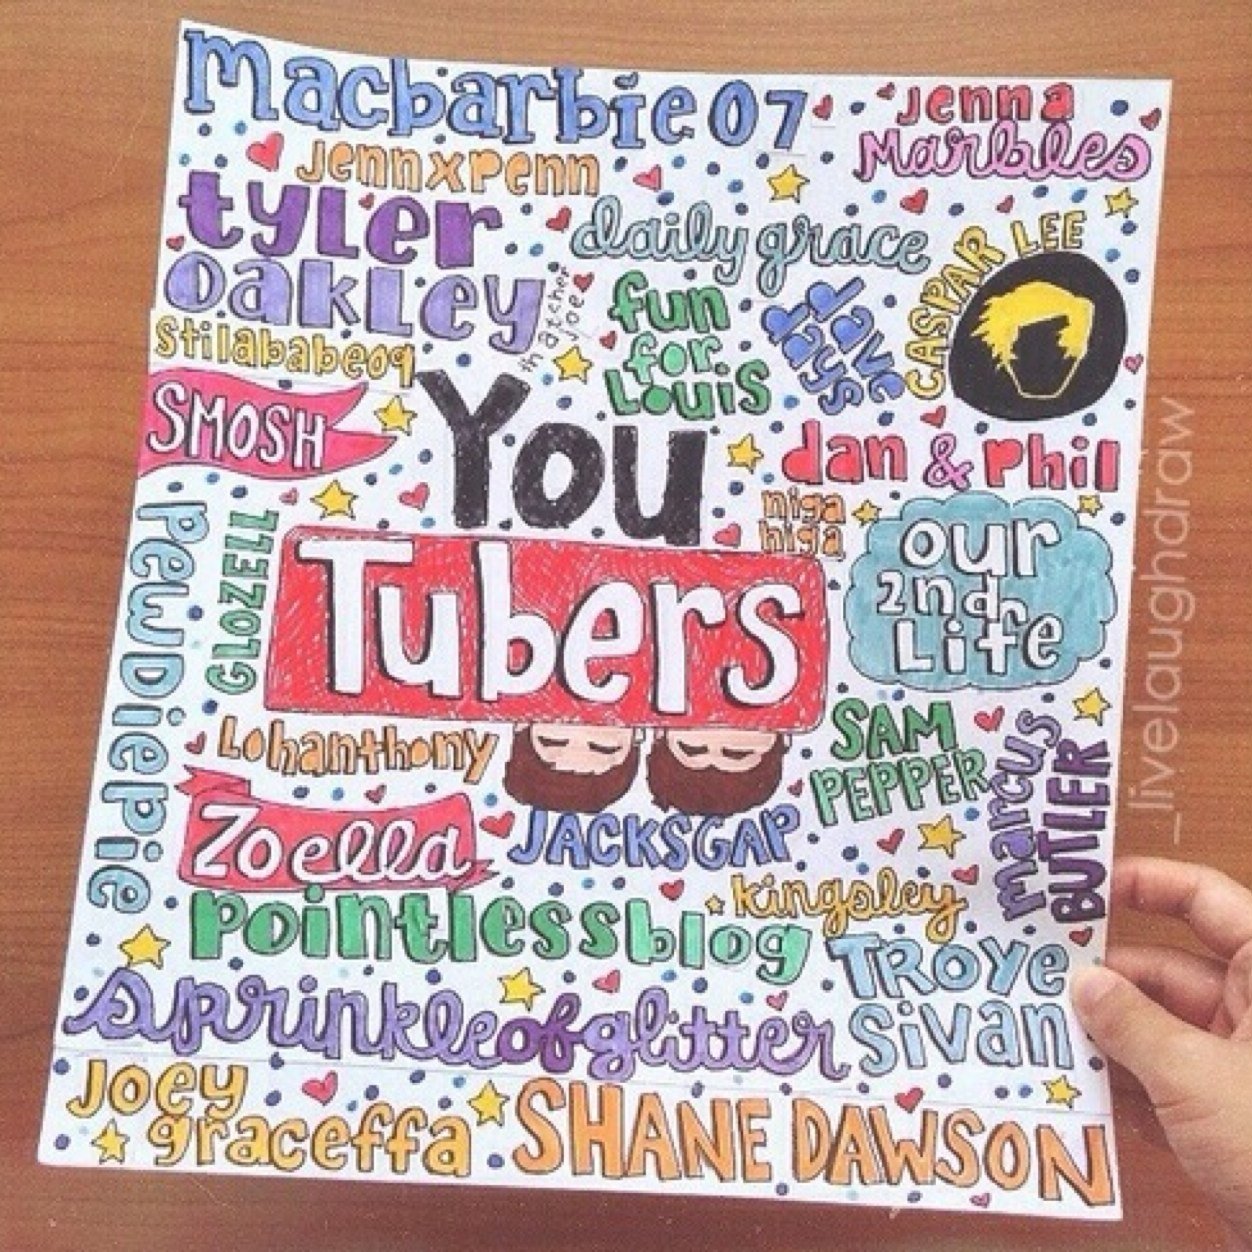 macbarbie07
Jenna
Marbles
Jennxpenn
tyler
oakley
daily grace
CASPAR LEE
thatcher
joe
fun
for
Louis
dave
days
Stilababe09
SMOSH
You
Tubers
dan & phil
niga
higa
our
2nd
Life
pewdiepie
GLOZELL
Lohanthony
SAM
PEPPER
marcus
BUTLER
Zoella
JACKSGAP
kingsley
pointlessblog
TRoye
Sivan
sprinkleofglitter
Joey
graceffa
SHANE DAWSON
_livelaughdraw